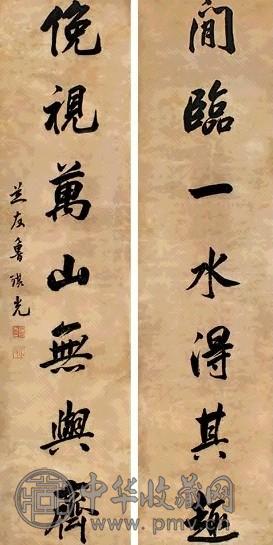 閒臨一水得其趣
俛視萬山無與齊
芝友魯琪光
中华收藏网